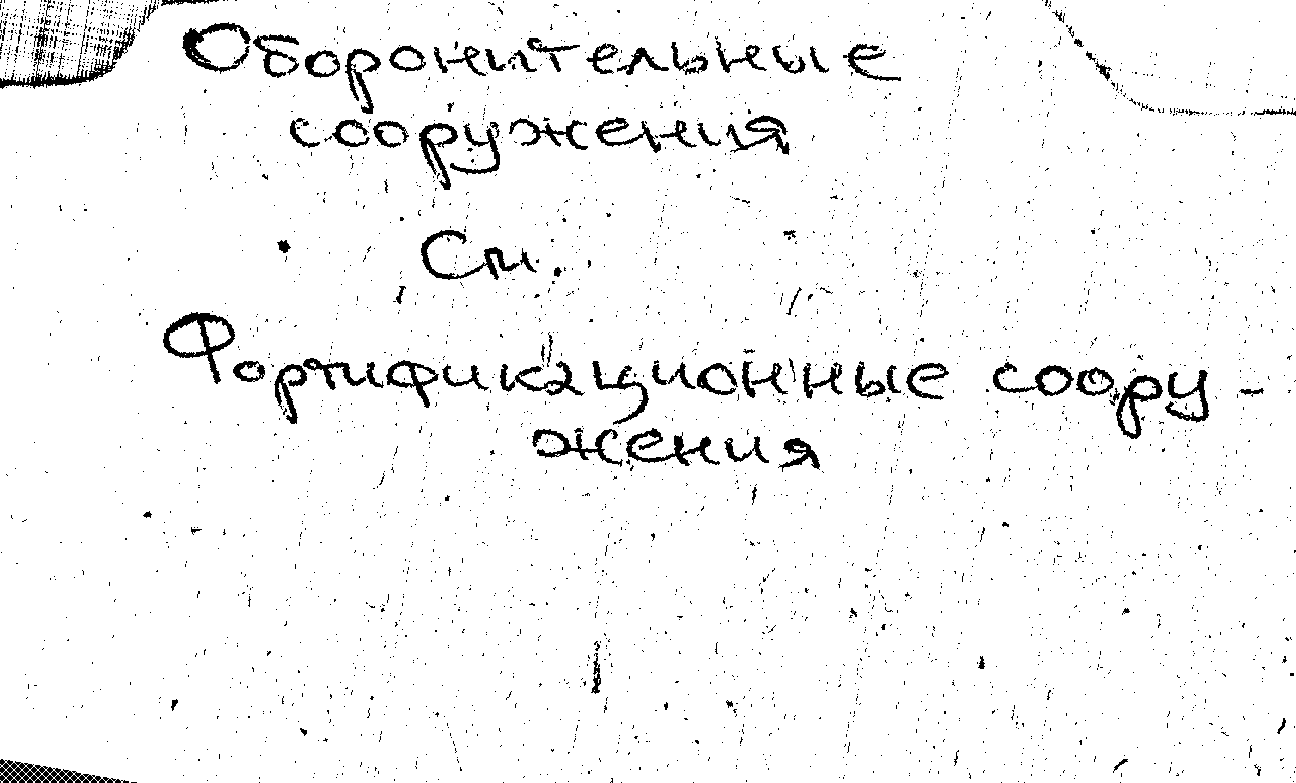 Оборонительные
сооружения
См.
Фортификационные соору-
жения